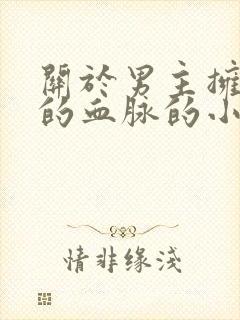 關於男主擁
的血脉的小
情非缘淺